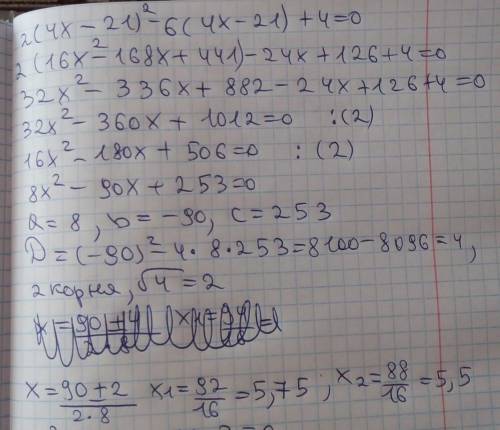 2(4x-21)²-6(4x-21)+4=0
2(16x²-168x+441)-24x+126+4=0
32x²-336x+882-24x+126+4=0
32x²-360x+1012=0 :(2)
16x²-180x+506=0 :(2)
8x²-90x+253=0
a=8, b=-90, c=253
D=(-90)²-4·8·253=8100-8096=4,
2 корня, √4=2
x=90±2/2·8 x1=92/16=5,75; x2=88/16=5,5